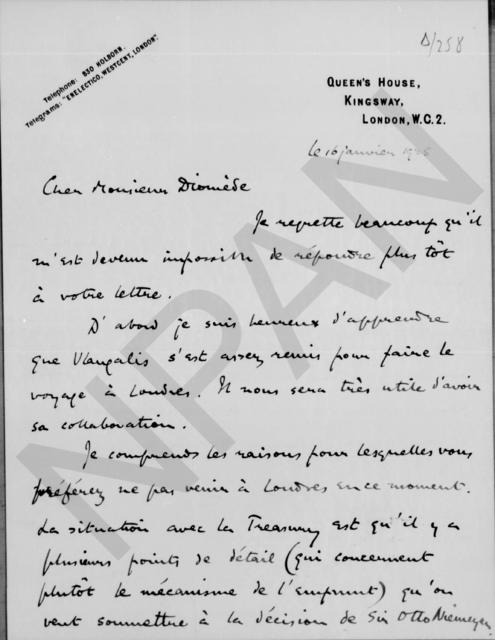 Δ/258
Telephone: 830 HOLBORN.
Telegrams: "ENELECTICO, WESTCENT, LONDON".
QUEEN'S HOUSE,
KINGSWAY,
LONDON, W.C. 2.
le 16 janvier
Cher Monsieur Diomède
Je regrette beaucoup qu'il
m'est devenu impossible de répondre plus tôt
à votre lettre.
D'abord je suis heureux d'apprendre
que Vlangalis s'est assez remis pour faire le
voyage à Londres. Il nous sera très utile d'avoir
sa collaboration.
Je comprends les raisons pour lesquelles vous
préférez ne pas venir à Londres en ce moment.
La situation avec la Treasury est qu'il y a
plusieurs points de détail (qui concernent
plutôt le mécanisme de l'emprunt) qu'on
veut soumettre à la décision de Sir Otto Niemeyer
NPAN